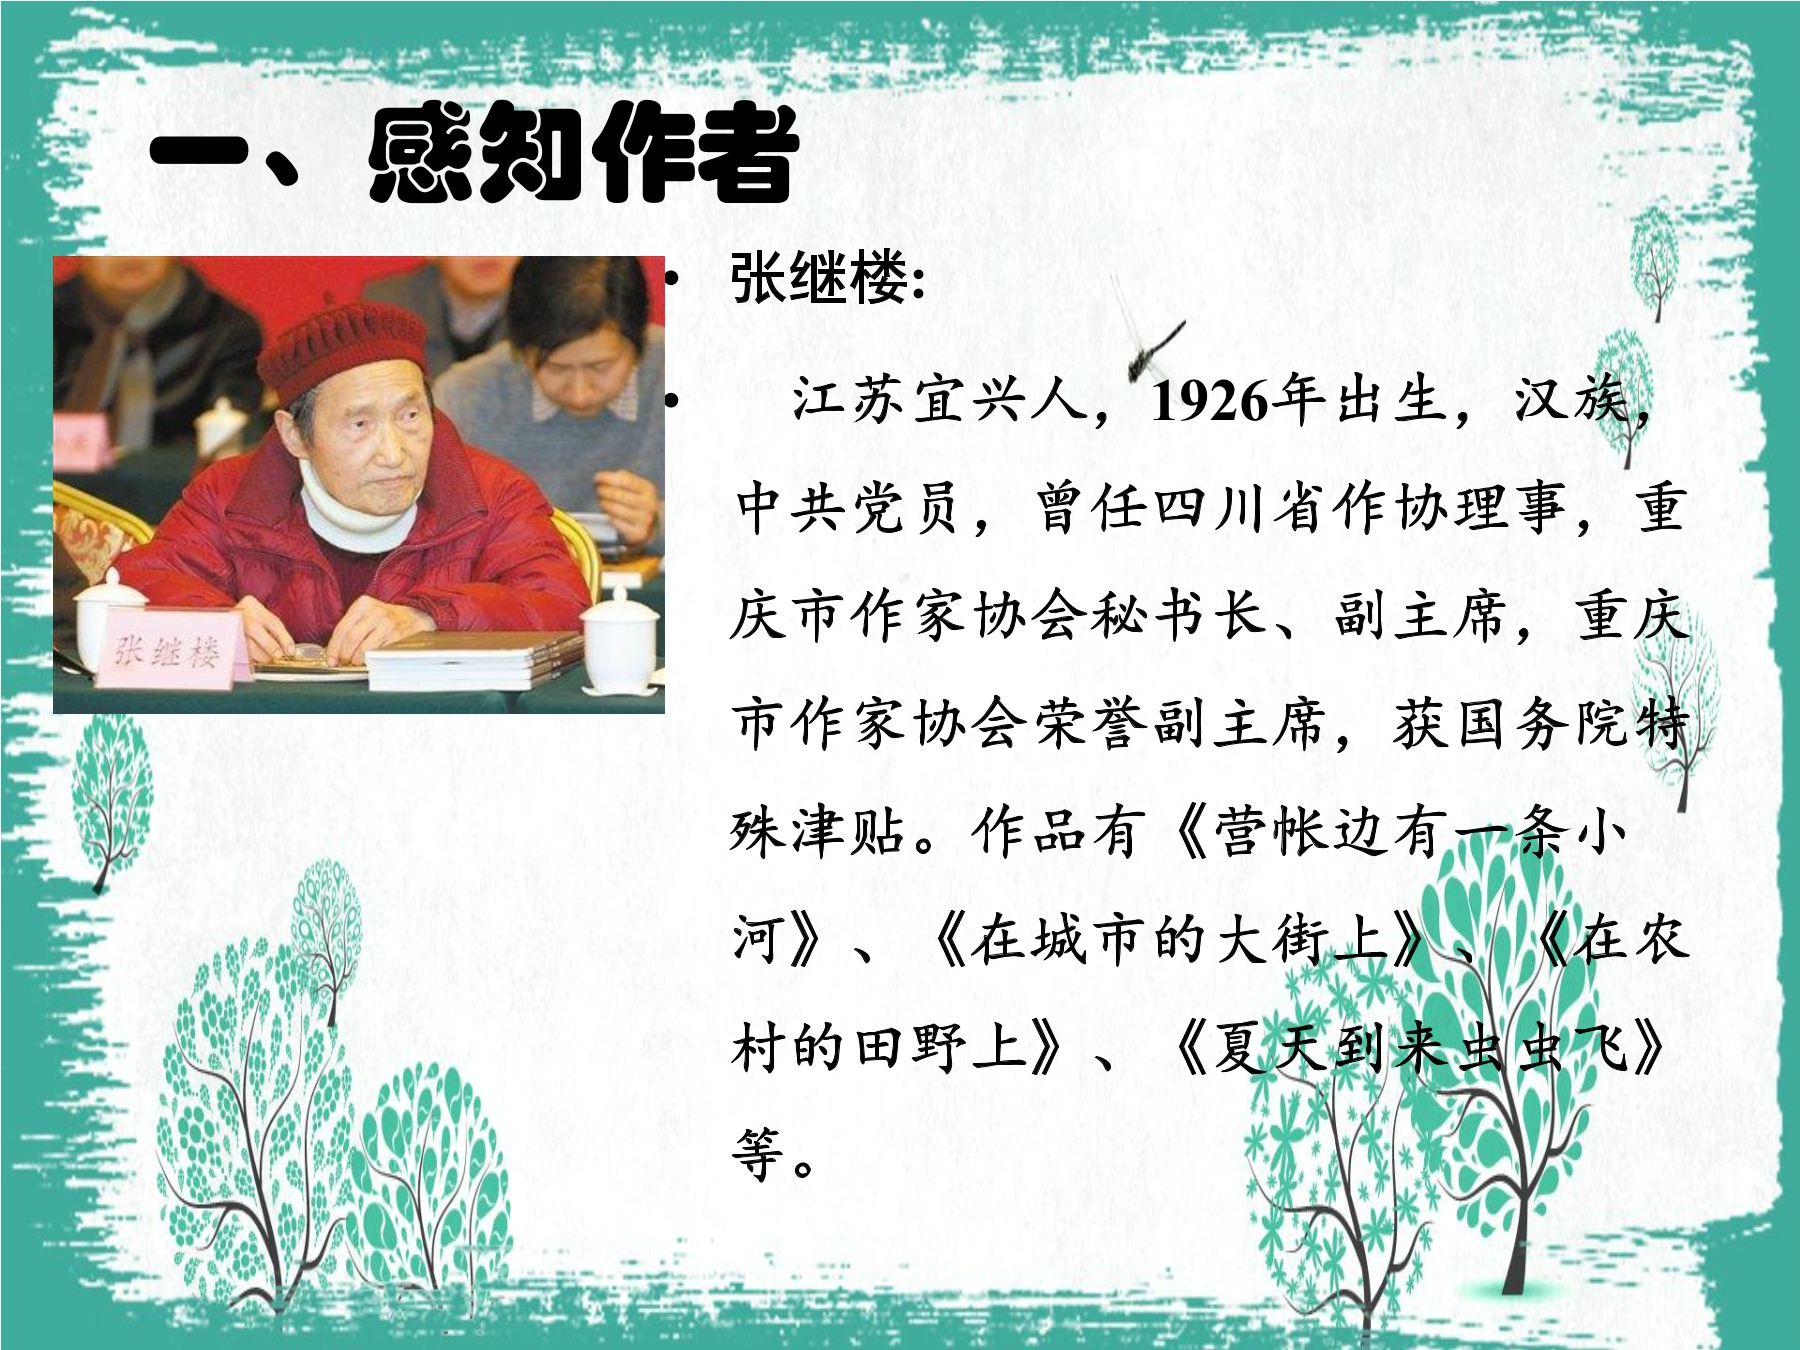 一、感知作者
张继楼
• 张继楼:
• 江苏宜兴人，1926年出生，汉族，
中共党员，曾任四川省作协理事，重
庆市作家协会秘书长、副主席，重庆
市作家协会荣誉副主席，获国务院特
殊津贴。作品有《营帐边有一条小
河》、《在城市的大街上》、《在农
村的田野上》、《夏天到来虫虫飞》
等。